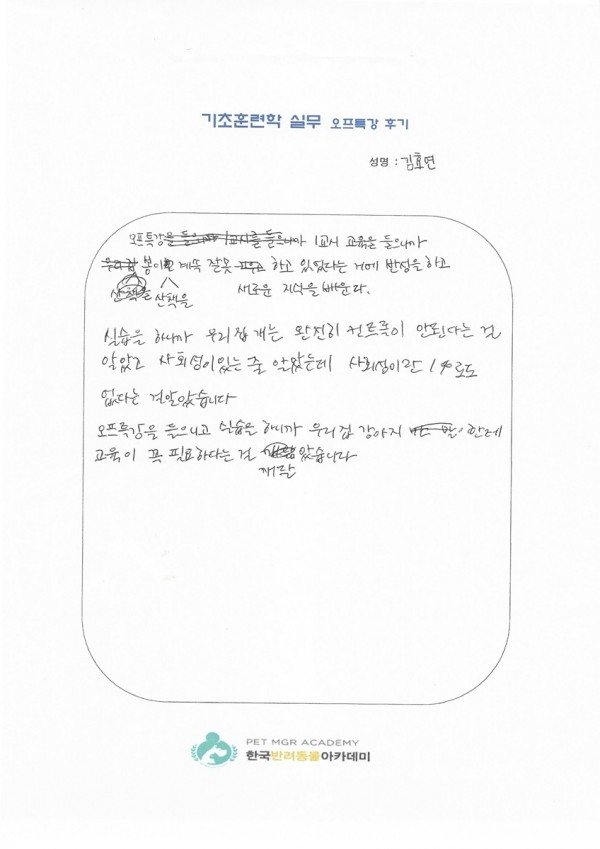 기초훈련학 실무 오프특강 후기
성명 : 김효연
오프특강 1교시 교육을 들으니까
봉이 계속 잘못 하고 있었다는 거에 반성을 하고
산책을 산책을 새로운 지식을 배운다.
실습을 하니까 우리집 개는 완전히 컨트롤이 안된다는 걸
알았고 사회성이있는 줄 알았는데 사회성이란 1%로도
없다는 걸알았습니다
오프특강을 들으니고 실습을 하니까 우리집 강아지 한테
교육이 꼭 필요하다는 걸 았습니다
PET MGR ACADEMY
한국반려동물아카데미